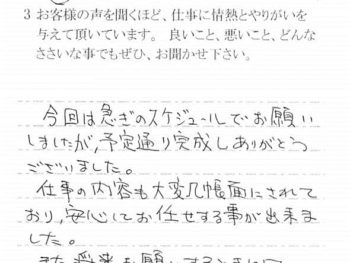 3 お客様の声を聞くほど、仕事に情熱とやりがいを
与えて頂いています。 良いこと、悪いこと、どんな
ささいな事でもぜひ、お聞かせ下さい。
今回は急ぎのスケジュールでお願い
しましたが、予定通り完成しありがとう
ございました。
仕事の内容も大変几帳面にされて
おり、安心してお任せする事が出来ま
した。
また